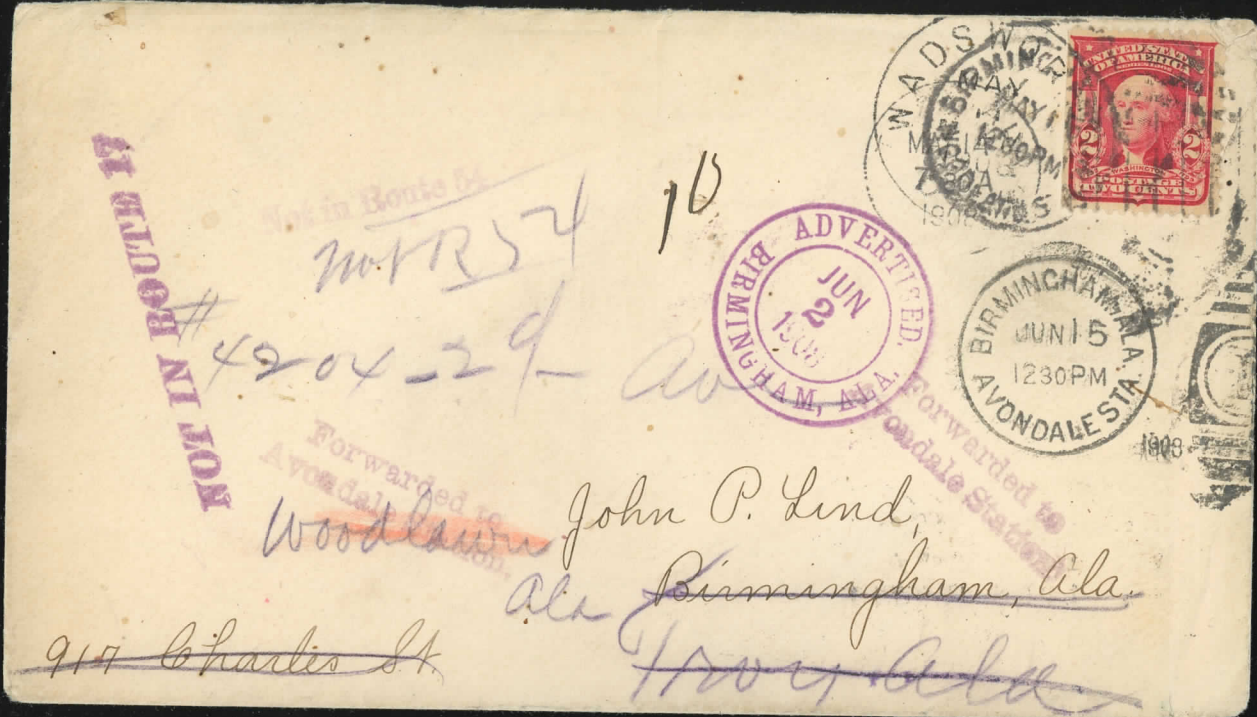 WADSWOR
MAY 14
7
1908
BIRMIN
MAY 1
1230PM
UNITED STATES
OF AMERICA
2 2
WASHINGTON
TWO CENTS
NOT IN ROUTE 17
Not in Route 54
Not R 54
10
ADVERTISED.
JUN
2
1908
BIRMINGHAM, ALA.
BIRMINGHAM, ALA.
JUN 15
1230PM
AVONDALE STA.
1908
# 4204-29- Av
Forwarded to
Avondale Station.
Forwarded to
Avondale Station.
Woodlawn
Ala
John P. Lind,
Birmingham, Ala.
917 Charles St.
Troy Ala